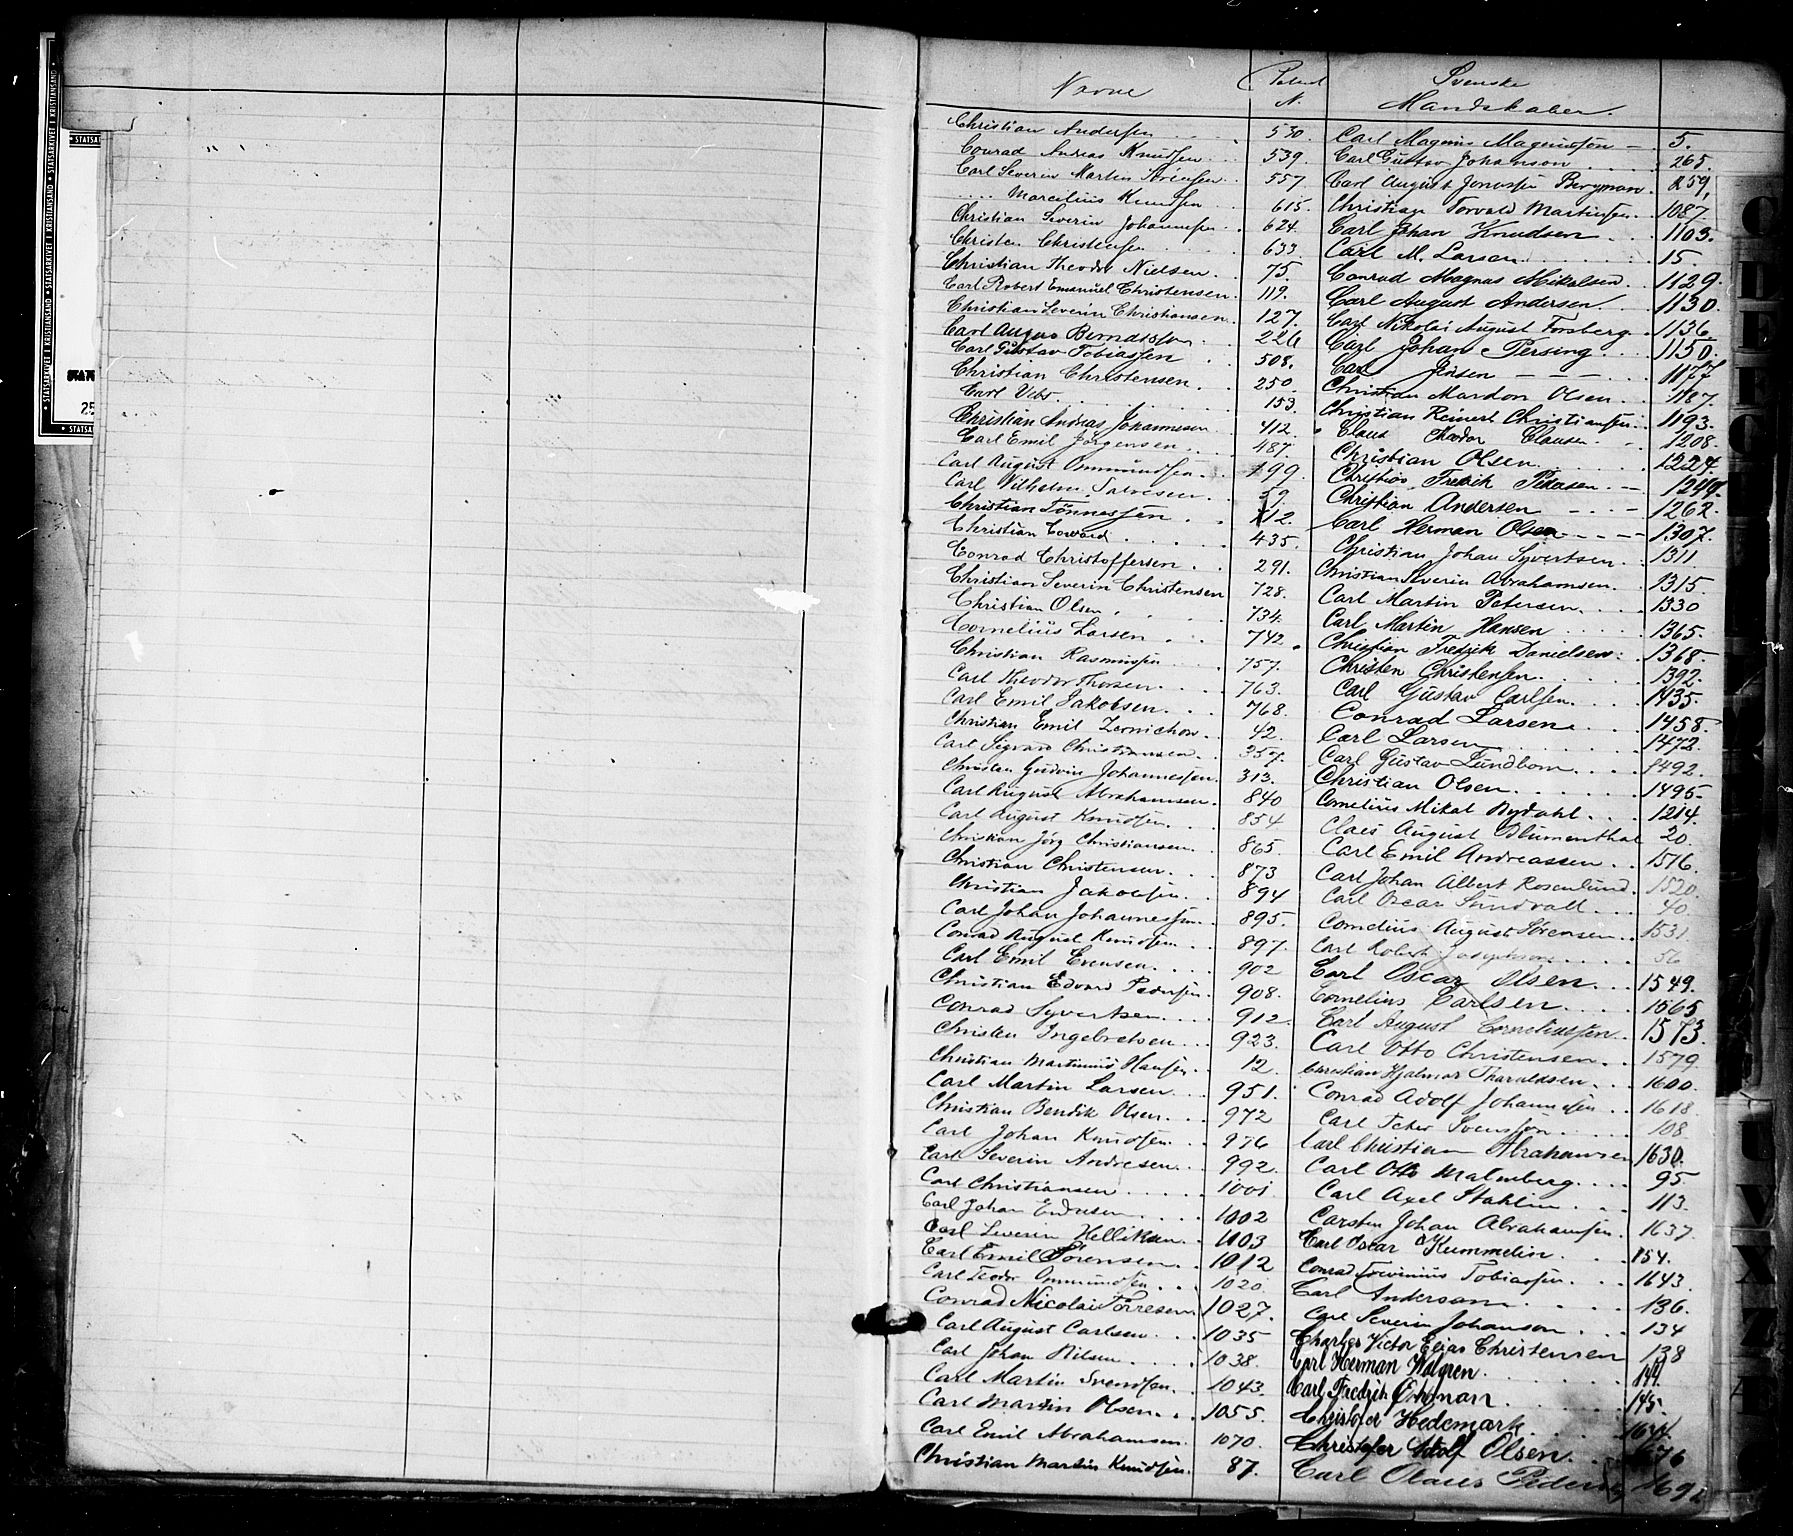 STATSARKIVET I KRISTIANSAND
Navne
N.
Svenske
Mandskaber.
Christian Andersen 530
Conrad Andreas Knudsen 539.
Carl Severin Martin Sørensen 557
Marcelius Knudsen 615.
Christian Severin Johannesen 624.
Christen Christensen 633
Christian Theodor Nielsen. 75.
Carl Robert Emanuel Christensen. 119.
Christian Severin Christiansen. 127.
Carl August Berndtsen 226
Carl Gustav Tobiassen 508.
Christian Christensen. 250.
Carl 153.
Christian Andreas Johannesen 412.
Carl Emil Jørgensen 487.
Carl August Ommundsen 499
Carl Vilhelm Salvesen 59.
Christian Tønnessen 112.
Christian Edward 435.
Conrad Christoffersen 291.
Christian Severin Christensen 728.
Christian Olsen 734.
Cornelius Larsen 742.
Christian Rasmussen 757.
Carl Theodor Thorsen. 763.
Carl Emil Jakobsen. 768.
Christian Emil Zernichow. 42.
Carl Sigvard Christiansen 357.
Christen Gudvin Johannessen. 313.
Carl August Abrahamsen. 840
Carl August Knudsen 854
Christian Jörg Christiansen. 865.
Christian Christensen. 873
Christian Jakobsen 894
Carl Johan Johannessen 895.
Conrad August Knudsen 897.
Carl Emil Evensen. 902
Christian Edvard Pedersen. 908.
Conrad Syvertsen 912.
Christen Ingebretsen 923.
Christian Martinius Hansen. 12.
Carl Martin Larsen 951.
Christian Bendik Olsen. 972
Carl Johan Knudsen. 976
Carl Severin Andresen. 992.
Carl Christiansen 1001
Carl Johan Endresen 1002
Carl Severin Helliksen 1003
Carl Emil Sørensen 1012
Carl Teodor Ommundsen 1020.
Conrad Nicolai Tørresen 1027.
Carl August Carlsen. 1035
Carl Johan Nilsen 1038.
Carl Martin Svendsen. 1043.
Carl Martin Olsen. 1055.
Carl Emil Abrahamsen 1070.
Christian Martin Knudsen. 87.
Carl Magnus Magnusson 5.
Carl Gustav Johanson 265.
Carl August Jonassen Bergman. 259,
Christian Torvald Martinsen 1087.
Carl Johan Knudsen 1103.
Carl M. Larsen 15
Conrad Magnus Mikalsen. 1129.
Carl August Andersen. 1130.
Carl Nikolai August Forsberg 1136.
Carl Johan Persing 1150.
Carl Jensen 1177
Christian Mardon Olsen 1187.
Christian Reinert Christiansen 1193.
Claus Theodor Clausen 1208.
Christian Olsen. 1224.
Christian Fredrik Pedersen 1249.
Christian Andersen 1262.
Carl Herman Olsen 1307.
Christian Johan Syvertsen 1311
Christian Severin Abrahamsen. 1315
Carl Martin Petersen. 1330
Carl Martin Hansen 1365.
Christian Fredrik Danielsen. 1368.
Christen Christensen. 1392.
Carl Gustav Carlsen. 1435.
Conrad Larsen 1458.
Carl Larsen 1472.
Carl Gustav Lundbom 1492.
Christian Olsen 1495.
Cornelius Mikal Bydahl. 1214.
Claes August Blumenthal 20.
Carl Emil Andreassen 1516.
Carl Johan Albert Rosenlund. 1520
Carl Oscar Sundvall 40
Cornelius August Sørensen 1531
Carl Robert Josephson 56
Carl Oscar Olsen 1549.
Cornelius Carlsen 1565
Carl August Corneliussen 1573.
Carl Otto Christensen 1579.
Christian Hjalmar Tharaldsen 1600.
Conrad Adolf Johannesen 1618
Carl Peter Svensson 108
Carl Christian Abrahamsen 1630.
Carl Otto Malmberg. 95
Carl Axel Stahlin 113.
Carsten Johan Abrahamsen. 1637.
Carl Oscar Kummelin. 154.
Conrad Tobiassen. 1643.
Carl Anderson 136.
Carl Severin Johanson 134
Charles Victor Elias Christensen 138
Carl Herman Walgren 144.
Carl Fredrik Öhman 145.
Christofer Hedemark 1644.
Christofer Adolf Olsen 1676
Carl Olaus Pedersen 1692